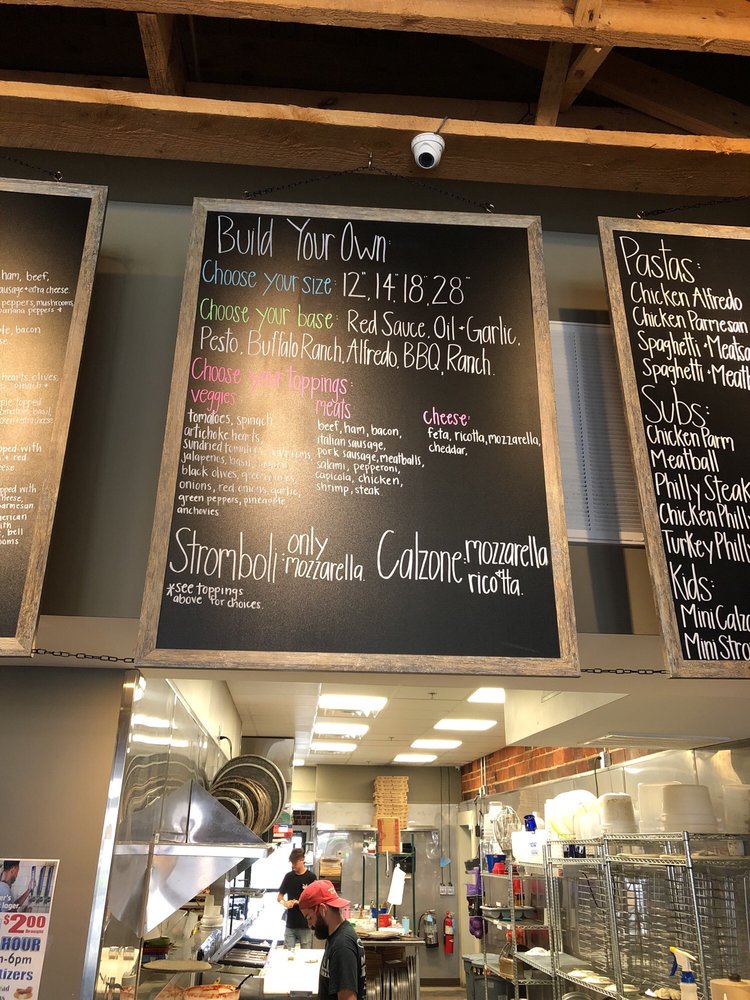 ham, beef,
sausage + extra cheese.
peppers, mushrooms,
banana peppers +
bacon
hearts, olives,
topped
basil,
extra cheese
topped with
+ red
topped with
cheese,
parmesan
with
bell
Build Your Own:
Choose your size: 12", 14", 18", 28"
Choose your base: Red Sauce, Oil + Garlic,
Pesto, Buffalo Ranch, Alfredo, BBQ, Ranch.
Choose your toppings:
veggies
tomatoes, spinach,
artichoke hearts,
sundried tomatoes,
jalapenos, basil,
black olives,
onions, red onions, garlic,
green peppers, pineapple
anchovies
meats
beef, ham, bacon,
italian sausage,
pork sausage, meatballs,
salami, pepperoni,
capicola, chicken,
shrimp, steak
cheese:
feta, ricotta, mozzarella,
cheddar,
Stromboli: only mozzarella.
Calzone: mozzarella + ricotta.
*see toppings
above for choices.
Pastas:
Chicken Alfredo
Chicken Parmesan
Spaghetti + Meatsa
Spaghetti + Meatb
Subs:
Chicken Parm
Meatball
Philly Steak
Chicken Philly
Turkey Philly
Kids:
Mini Calzo
Mini Stro
$2.00
HOUR
-6pm
tizers